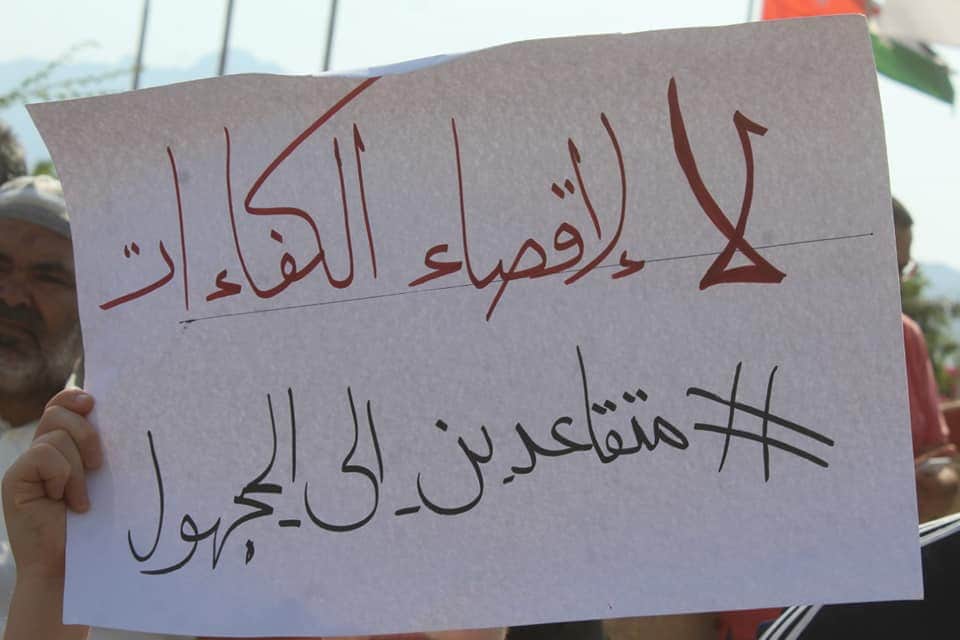 لا لإقصاء الكفاءات
#متقاعدين إلى المجهول